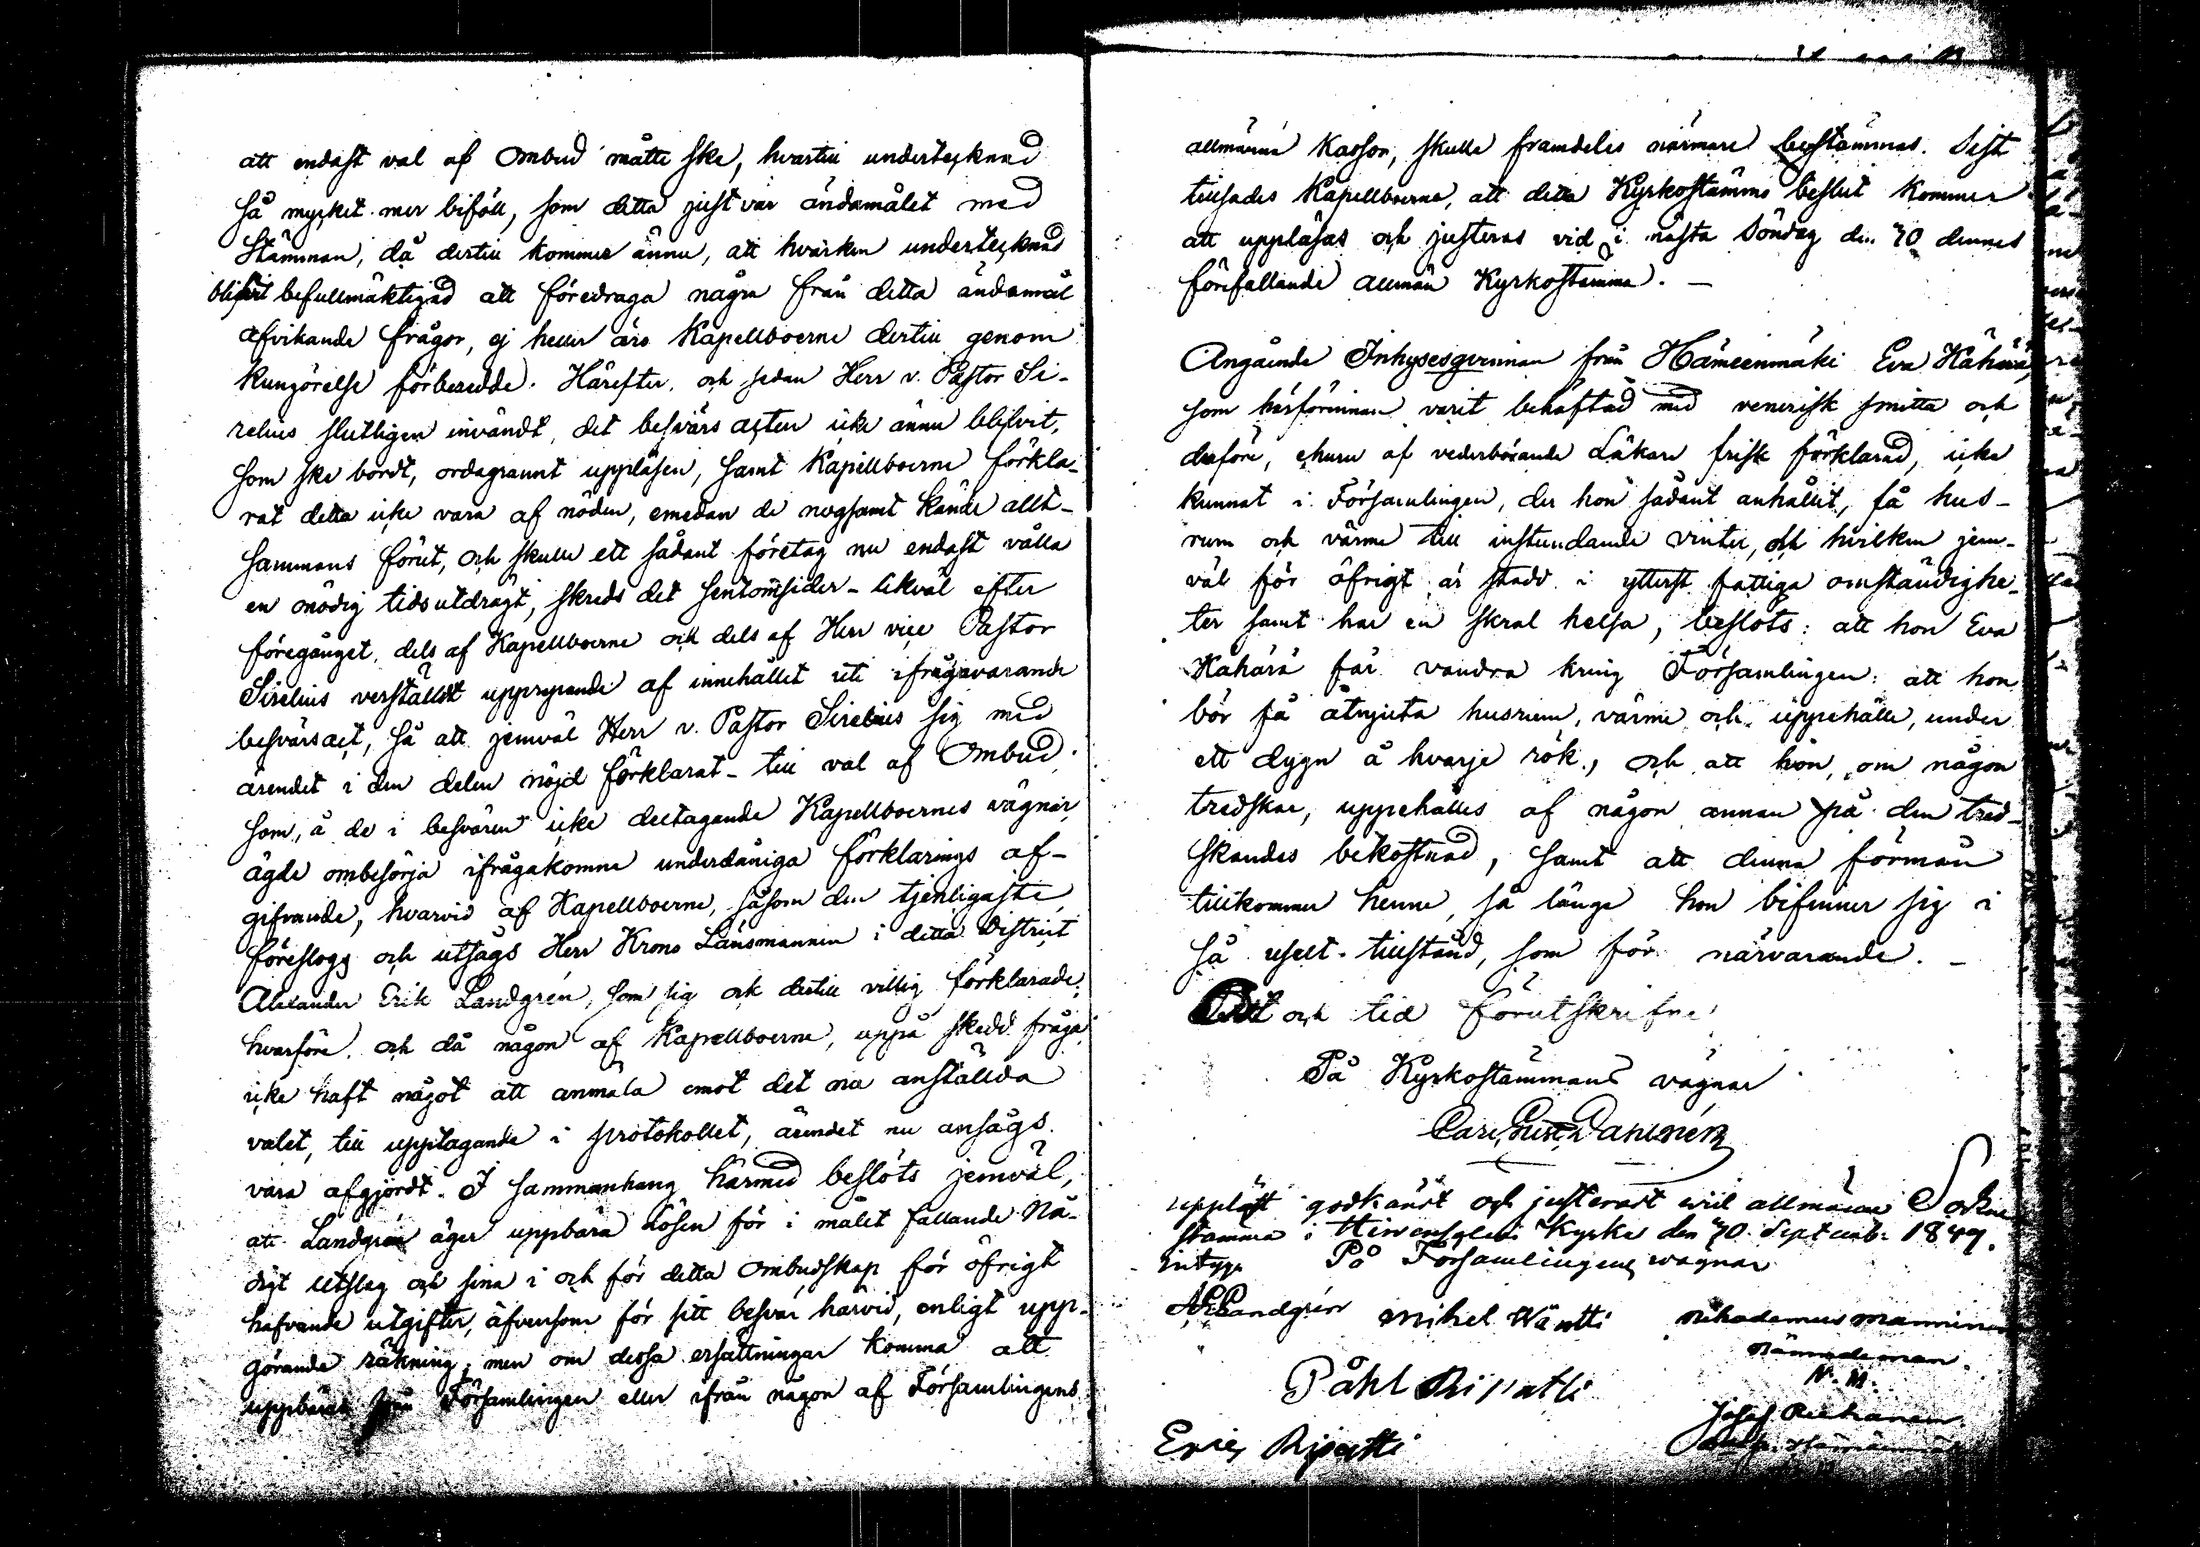 att endast val af Ombud måtte ske, hvartill undertecknad
så mycket mer biföll, som detta just var ändamålet med
Stämman, då dertill kommer ännu, att hvarken undertecknad
blifvit befullmäktigad att föredraga några från detta ändamål
afvikande frågor, ej heller äro Kapellboerne dertill genom
kungörelse förberedde. Härefter, och sedan Herr v. Pastor Si-
relius slutligen invändt, det besvärs acten icke ännu blifvit,
som ske bordt, ordagrannt uppläsen, samt Kapellboerne förkla-
rat detta icke vara af nöden, emedan de nogsamt kände allt-
sammans förut, och skulle ett sådant företag nu endast vålla
en onödig tidsutdrägt, skreds det sentomsider - likväl efter
föregånget, dels af Kapellboerne och dels af Herr vice Pastor
Sirelius verstäldt upprepande af innehållet uti ifrågavarande
besvärsact, så att jemväl Herr v. Pastor Sirelius sig med
ärendet i den delen nöjd förklarat - till val af Ombud,
som, å de i besvären icke deltagande Kapellboernes vägnar,
ägde ombesörja ifrågakomne underdåniga förklarings af-
gifvande, hvarvid af Kapellboerne, såsom den tjenligaste,
föreslogs och utsågs Herr Krono Länsmannen i detta District
Alexander Erik Landgrén, som sig ock dertill villig förklarade;
hvarföre, och då någon af Kapellboerne, uppå skedd fråga,
icke haft något att anmäla emot det nu anställda
valet, till upptagande i protokollet, ärendet nu ansågs
vara afgjordt. I sammanhang härmed beslöts jemväl,
att Landgrén äger uppbära lösen för i målet fallande Nå-
digt Utslag och sina i och för detta Ombudskap för öfrigt
hafvande utgifter, äfvensom för sitt besvär härvid, enligt upp-
görande räkning; men om dessa ersättningar komma att
uppbäras från Församlingen eller ifrån någon af Församlingens
allmänna Kassor, skulle framdeles närmare bestämmas. Sist
tillsades Kapellboerne, att detta Kyrkostämmo beslut kommer
att uppläsas och justeras vid i nästa Söndag den 30 dennes
förefallande allmän Kyrkostämma. -
Angående Inhysesqvinnan från Hämeenmäki Eva Kähärä,
som härförinnan varit behäftad med venerisk smitta och
derföre, ehuru af vederbörande Läkare frisk förklarad, icke
kunnat i Församlingen, der hon sådant anhållit, få hus-
rum och värme till instundande vinter, och hvilken jem-
väl för öfrigt är stadd i ytterst fattiga omständighe-
ter samt har en skral helsa, beslöts: att hon Eva
Kähärä får vandra kring Församlingen: att hon
bör få åtnjuta husrum, värme och uppehälle, under
ett dygn å hvarje rök, och att hon, om någon
tredskar, uppehålles af någon annan på den tred-
skandes bekostnad, samt att denna förmån
tillkommer henne, så länge hon befinner sig i
så uselt tillstånd, som för närvarande. -
Ort och tid förutskrifne
På Kyrkostämmans vägnar
Carl Gust. Dahlnér
uppläst godkänt och justerat wid allmänna Sokne
stämma i Kyrka den 30 Septemb. 1849.
intyga På Församlingens wägnar
A E Landgrén Mikel Wäntti Nikodemus Manninen
Nämndeman.
N. M.
Påhl Ripatti
Josef
Eric Ripatti